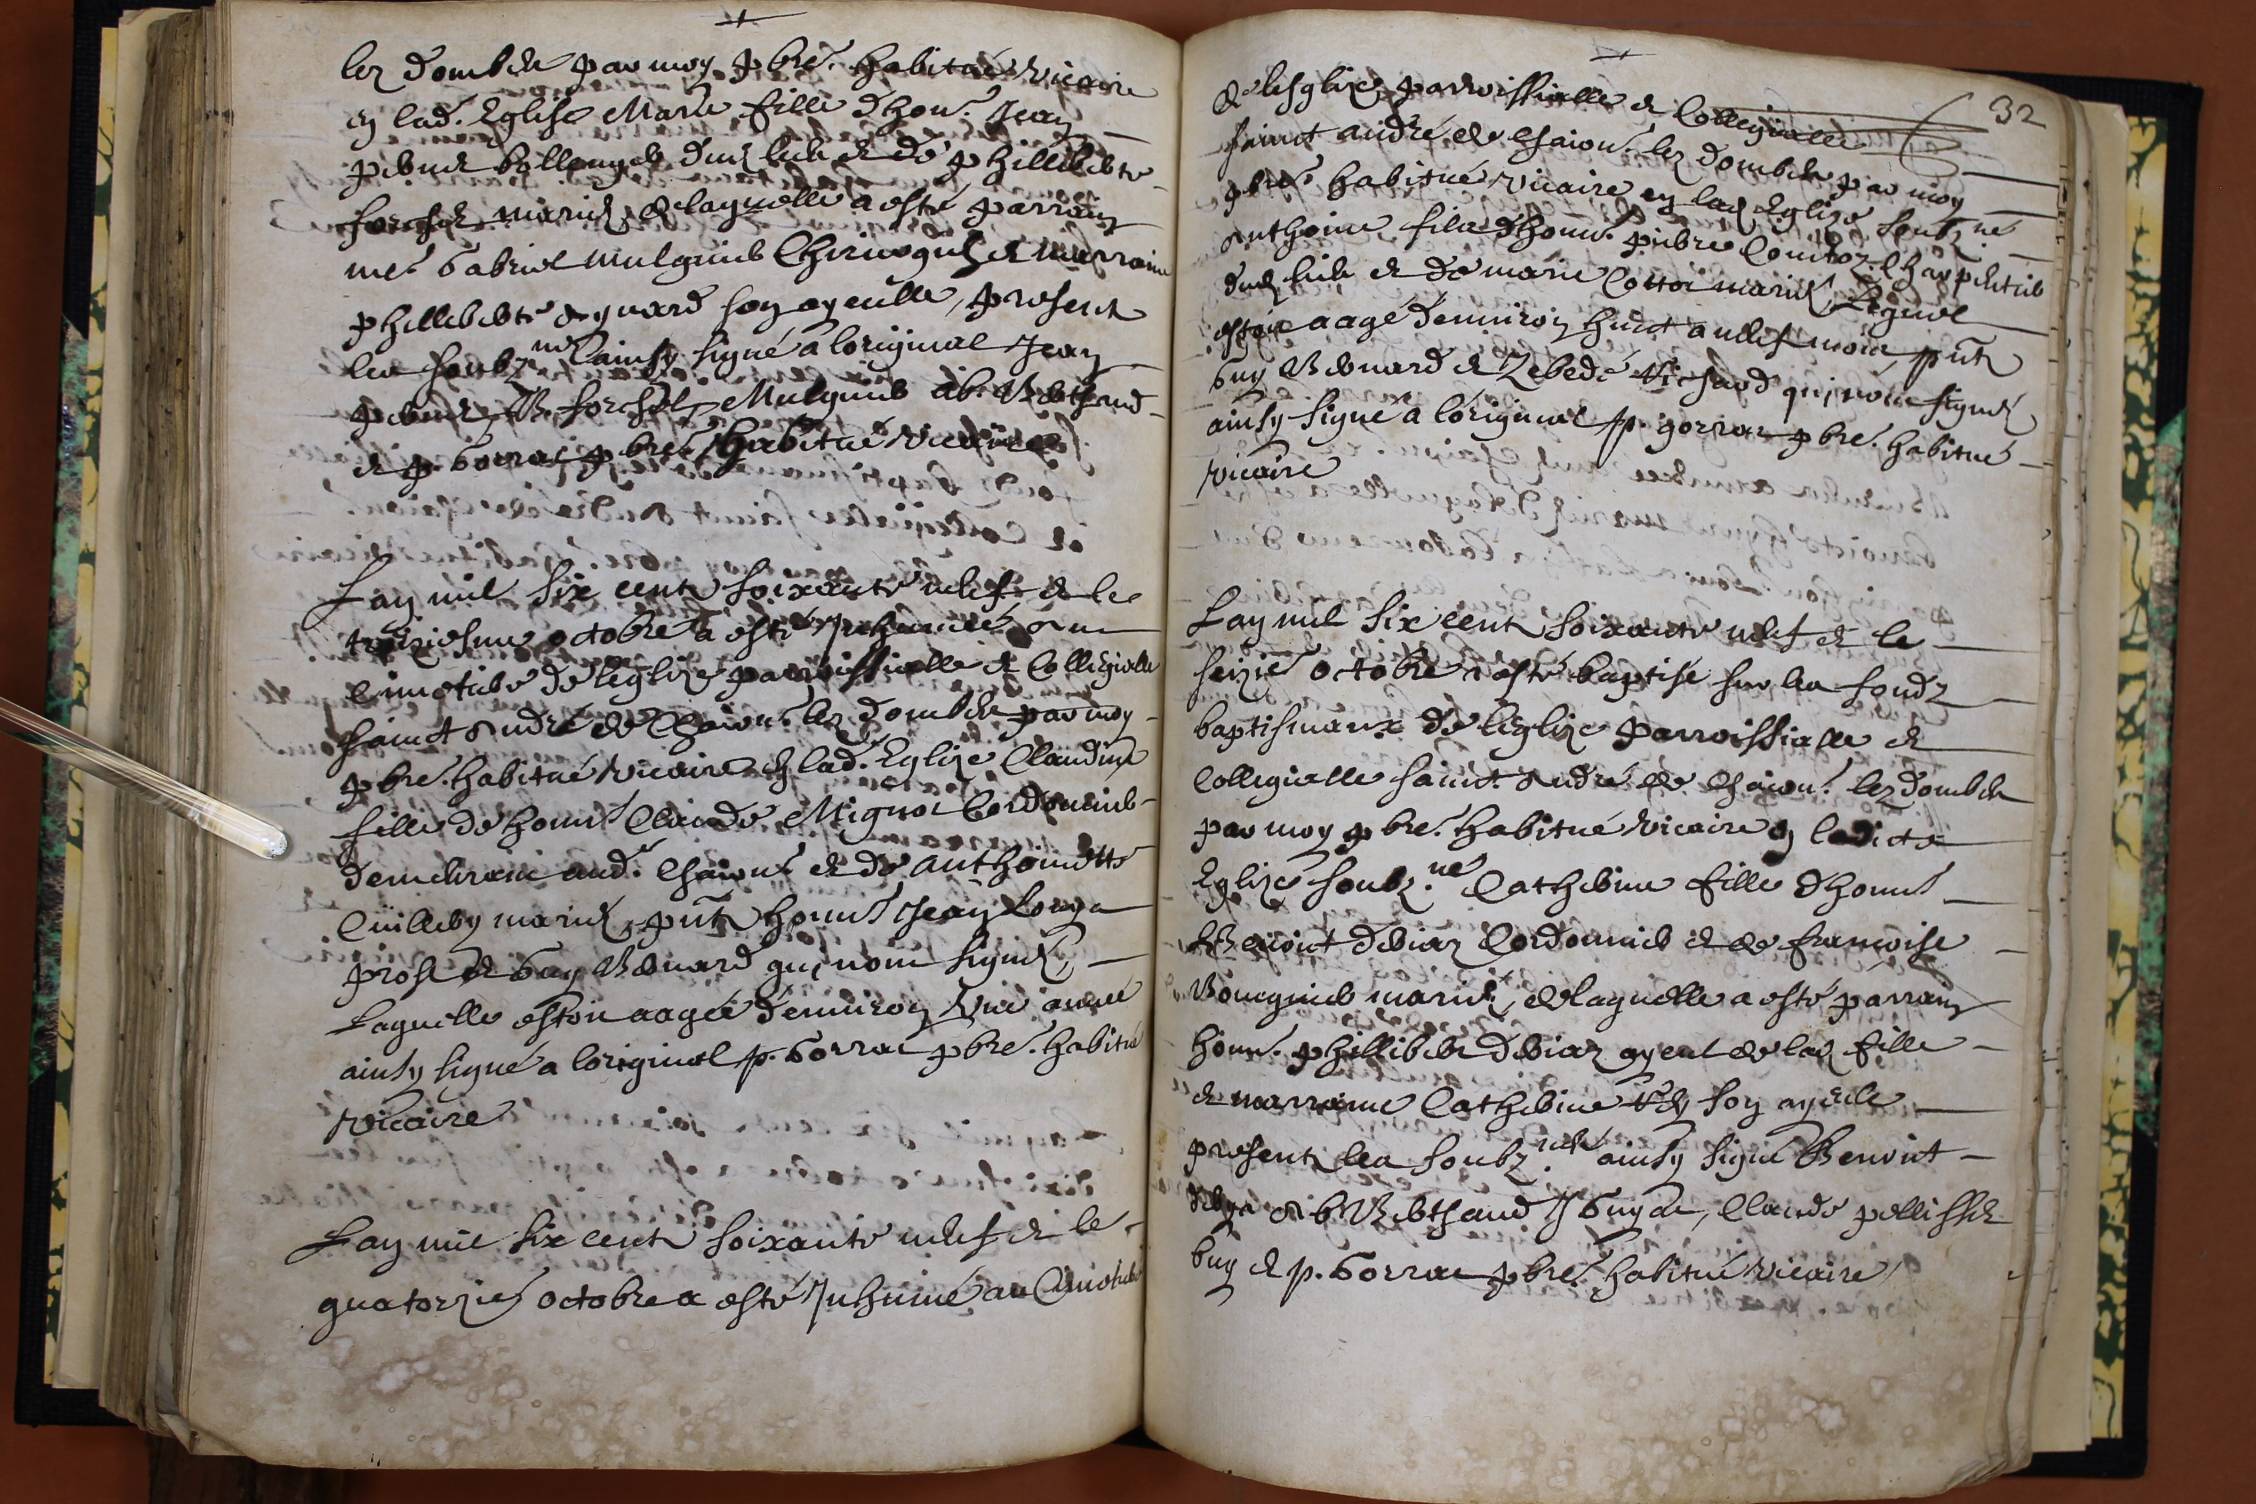 lez dombes par moy pbre. habitué vicaire
en lad. Eglise Marie fille d'hon. Jean
boullenger dud. lieu et de philliberte
mariez de laquelle a esté parrain
me. Gabriel mulquier Chirurgien et marraine
phelleberte son ayeulle, presents
les soubz.nez ainsy signé a loriginal Jean
Mulquier
et p. Gorrat pbre. habitué vicaire
Lan mil six cents soixante neuf et le
treiziesme octobre a esté Inhumée au
cimetiere de leglize parroissialle et Collegialle
sainct André de Chaion. lez dombes par moy
pbre. habitué vicaire en lad. Eglize Claudine
fille de hon. Claude Mignot Cordonnier
demeurant aud. Chaion. et de anthoinette
Cuillery mariez, pnts hon. Jean Louya
prost et Guy Benard qui, nont signez,
Laquelle estoit aagée d'enuiron vne année
ainsy signé a loriginal p. Gorrat pbre. habitué
vicaire
Lan mil six cents soixante neuf et le
quatorzie. octobre a esté Inhumé au Cimetiere
32
de lesglize parroissialle et Collegialle
sainct andré de Chaion. lez dombes par moy
pbre. habitué vicaire en lad. Eglize soubz.né
anthoine filz d'hon. pierre Charpentier
dud. lieu et de marie Cottoi mariez, Lequel
estoit aagé d'enuiron huict a neuf mois, pnts
Guy Benard et Zebedé Richard qui, nont signez
ainsy signé a loriginal p. gorrat pbre. habitué
vicaire
Lan mil six cents soixante neuf et le
seizie. octobre a esté baptisé sur les fondz
baptismaux de leglize parroissialle et
Collegialle sainct André de Chaion. lez dombes
par moy pbre. habitué vicaire en ladicte
Eglize soubz.né Catherine fille d'hon.
Benoict debiaz Cordonnier et de francoise
Bourguier mariez, de laquelle a esté parrain
hon. phillibert debiaz ayeul de lad. fille
et marraine Catherine son ayeule
presents les soubz.nez ainsy signé Benoict
Guyat, Claude pellissier
buy et p. Gorrat pbre. habitué vicaire